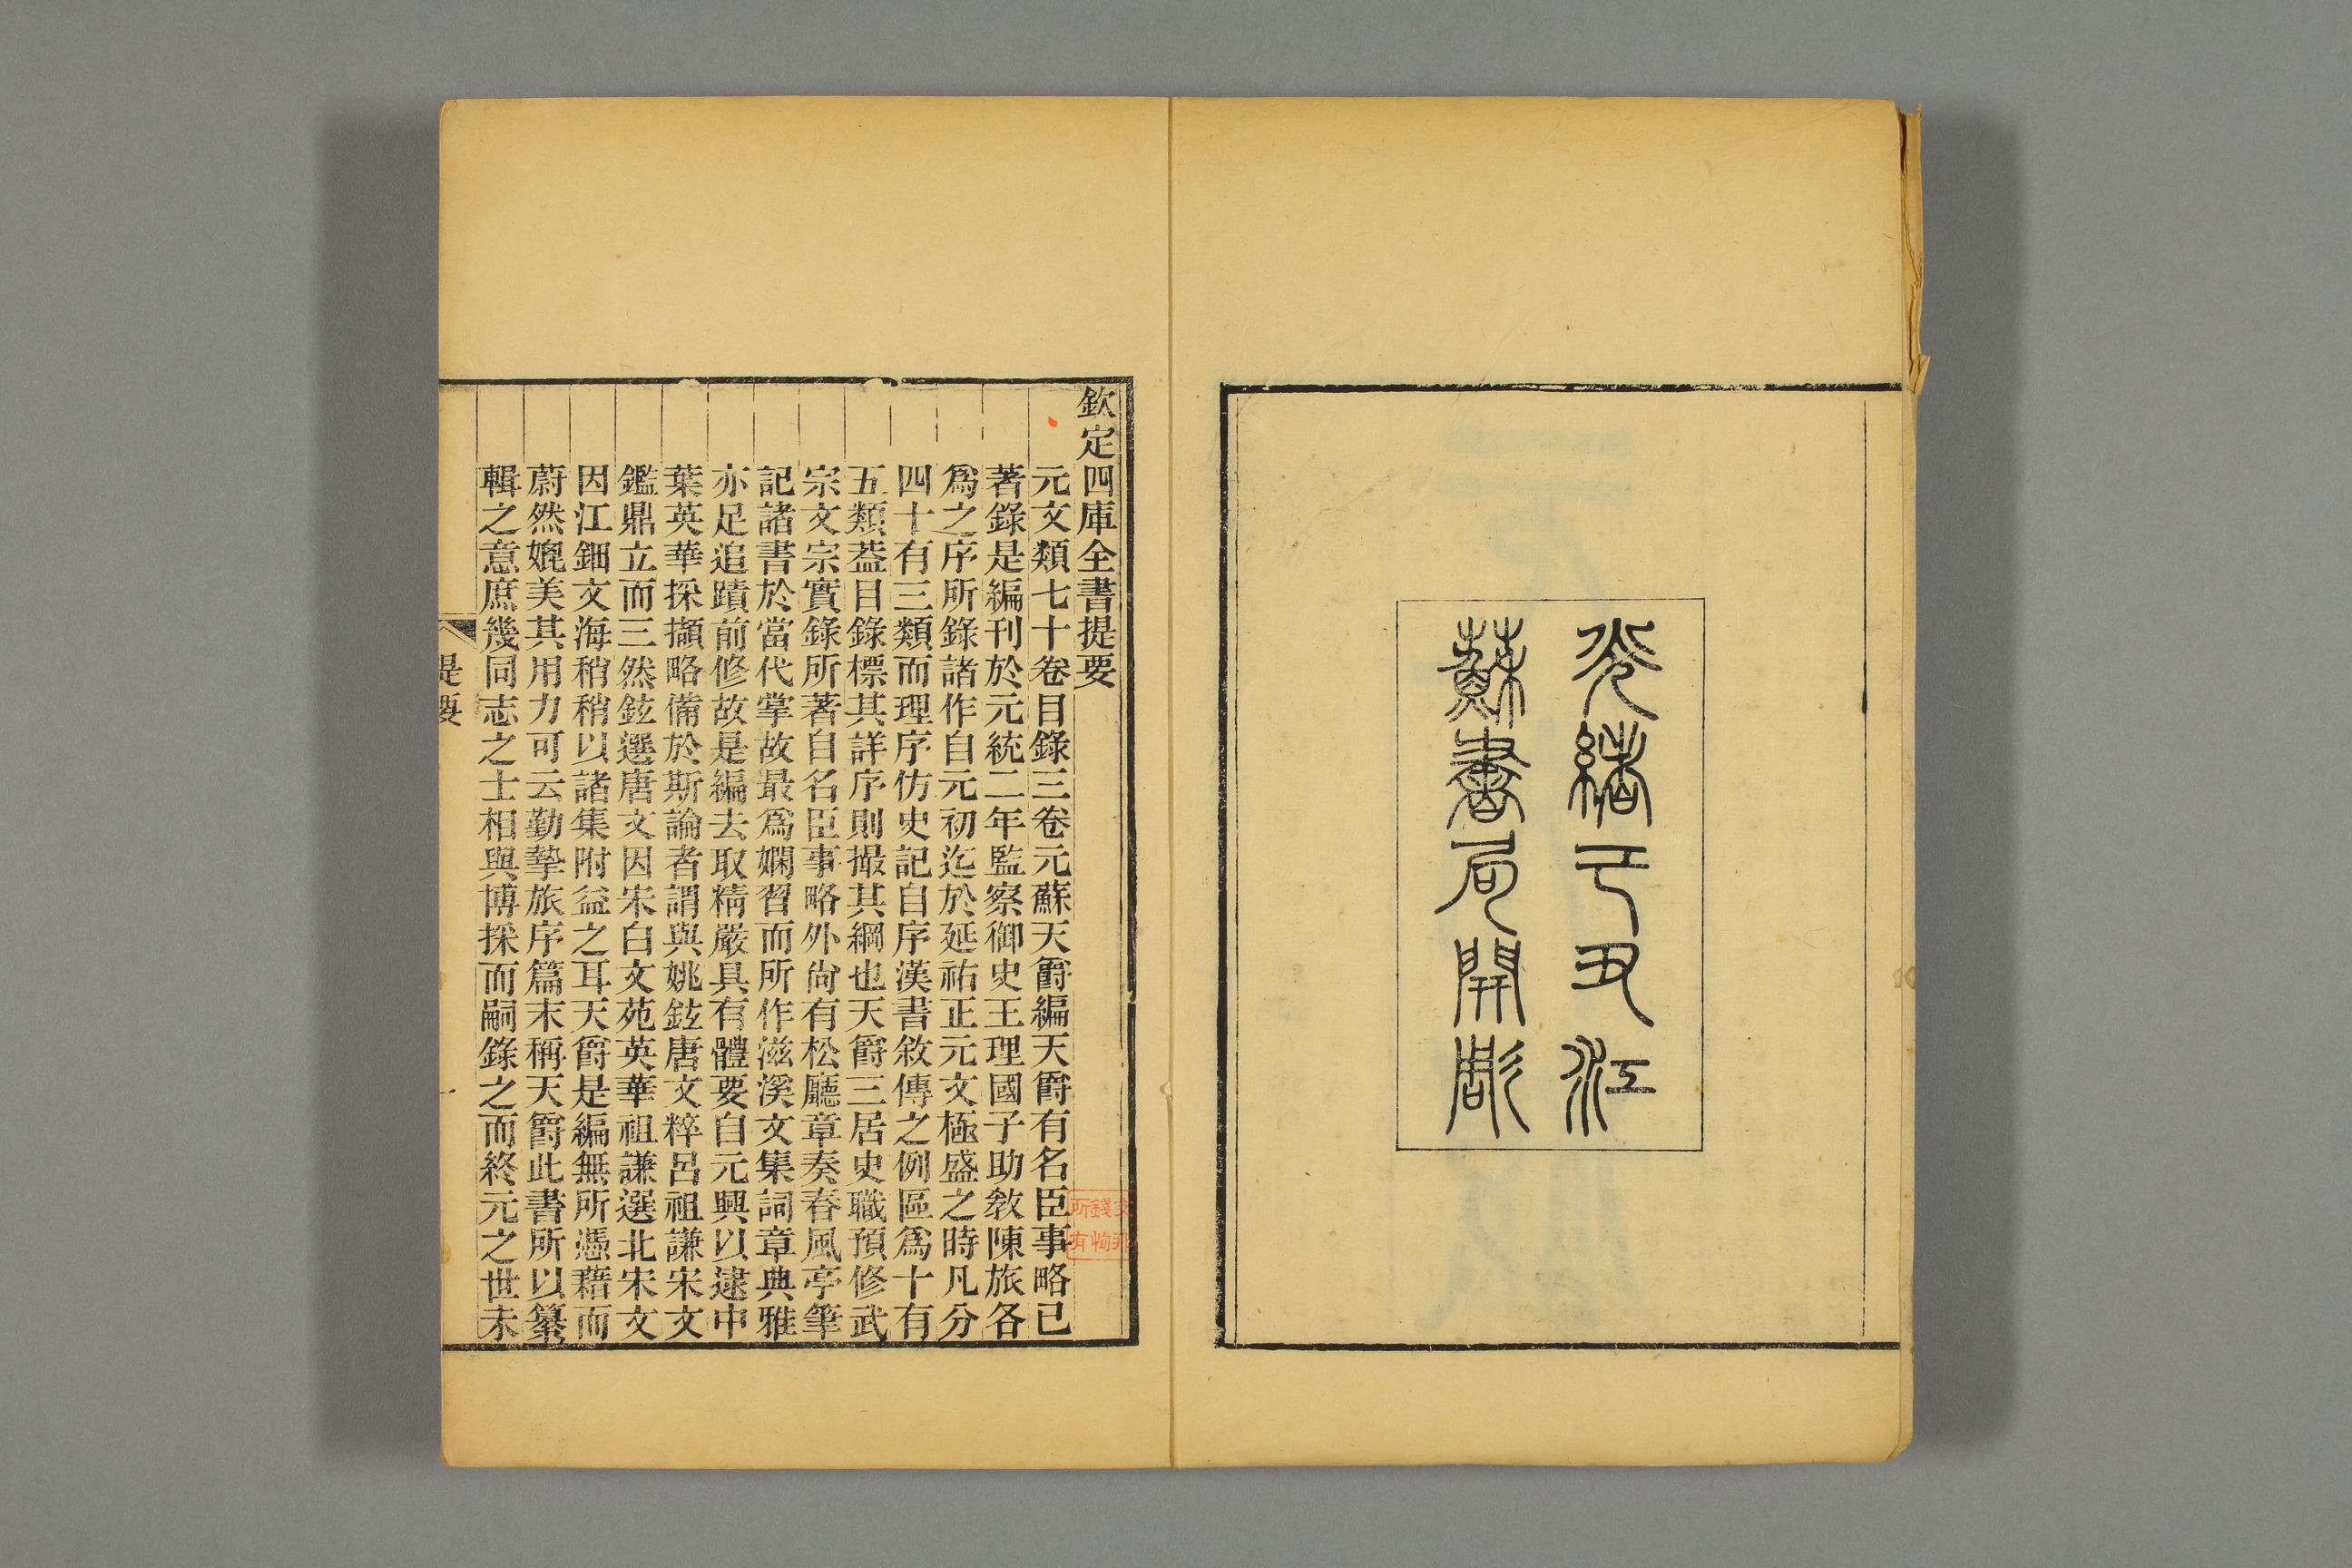 光緒己丑江
蘇書局開彫
欽定四庫全書提要
元文類七十卷目錄三卷元蘇天爵編天爵有名臣事略已
著錄是編刊於元統二年監察御史王理國子助敎陳旅各
爲之序所錄諸作自元初迄於延祐正元文極盛之時凡分
四十有三類而理序仿史記自序漢書敘傳之例區爲十有
五類葢目錄標其詳序則撮其綱也天爵三居史職預修武
宗文宗實錄所著自名臣事略外尙有松廳章奏春風亭筆
記諸書於當代掌故最爲嫻習而所作滋溪文集詞章典雅
亦足追蹟前修故是編去取精嚴具有體要自元興以逮中
葉英華採擷略備於斯論者謂與姚鉉唐文粹呂祖謙宋文
鑑鼎立而三然鉉選唐文因宋白文苑英華祖謙選北宋文
因江鈿文海稍稍以諸集附益之耳天爵是編無所憑藉而
蔚然媲美其用力可云勤摯旅序篇末稱天爵此書所以纂
輯之意庶幾同志之士相與博採而嗣錄之而終元之世未
提要
一